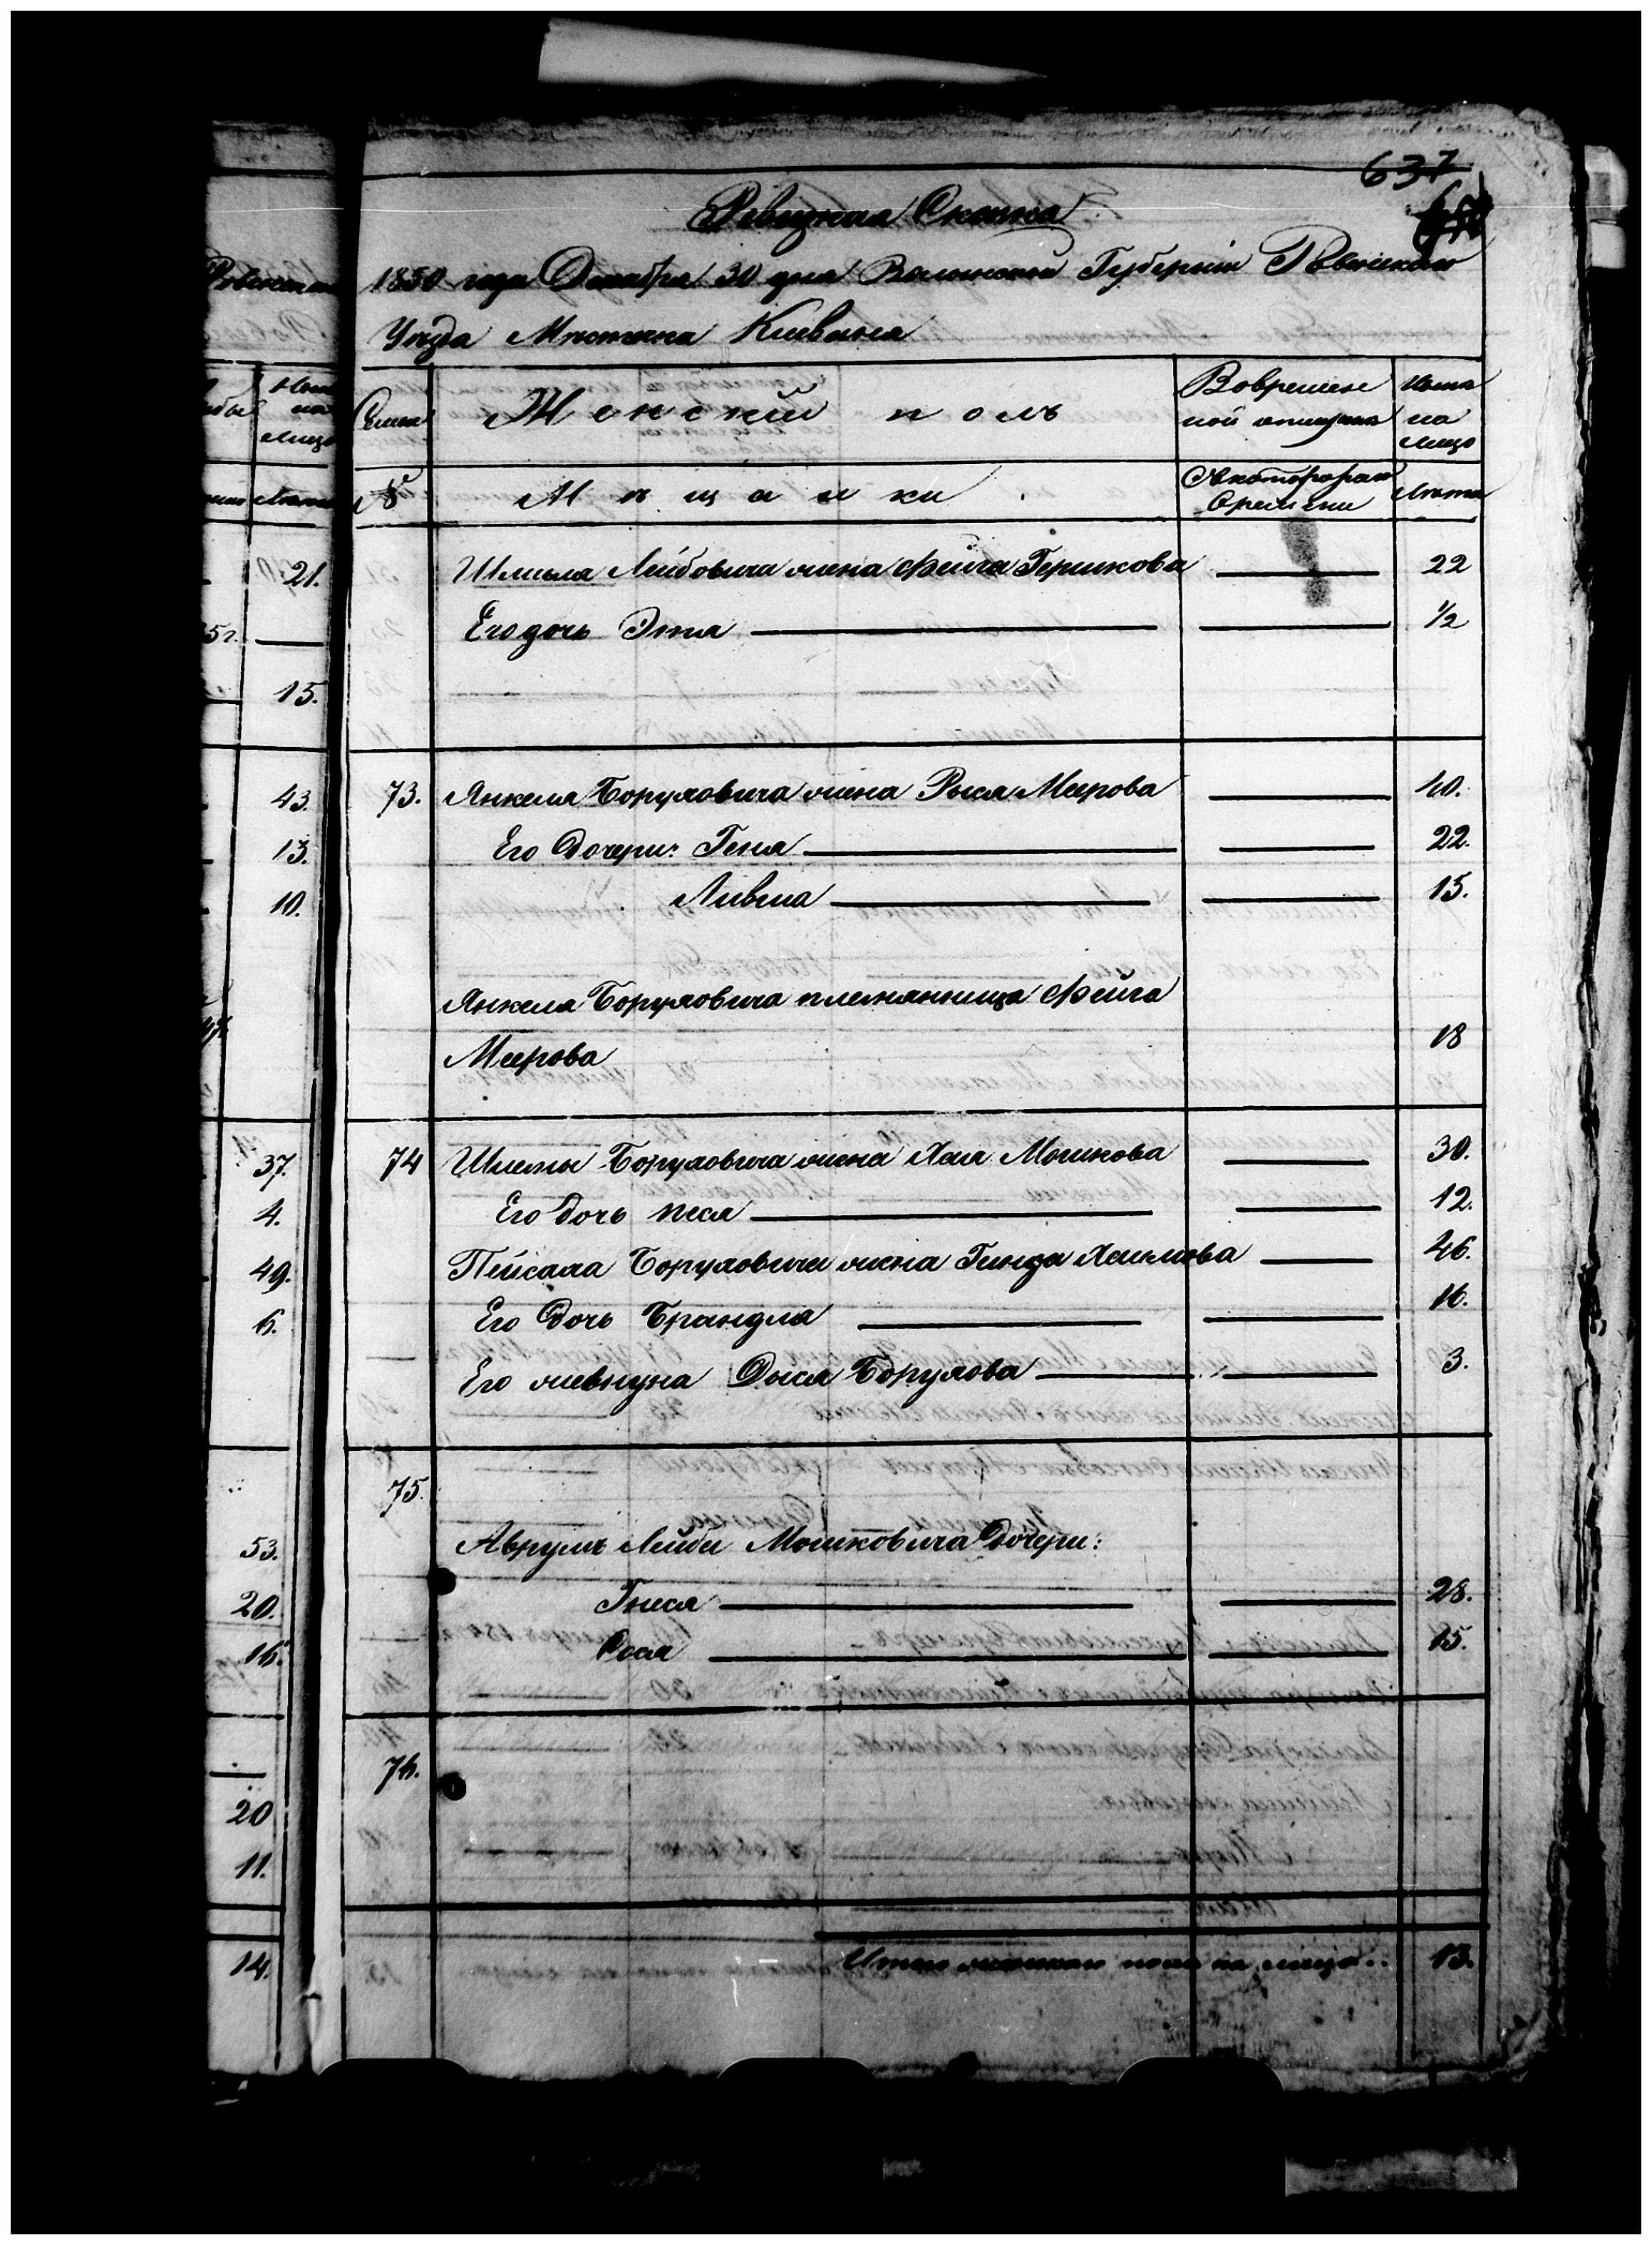 637
Ревизская Сказка
1850 года Декабря 30 дня Волынской Губернии Ровенскаго
Уезда Местечка Клеваня
Семьи
Женский полъ
Вовремен
ной отлучке
Ныне
на
лицо
№
Мещанки
Скотораго
времени
Лета
21.
Шмыля Лейбовича жена Фейга Гершкова 22
Его дочь Этля 1/2
15.
43. 73. Янкеля Боруховича жена Рыся Меерова 40.
13. Его Дочери: Геня 22.
10. Ливша 15.
Янкеля Боруховича племянница Фейга
Меерова 18
37. 74 Шлемы Боруховича жена Хая Мошкова 30.
4. Его дочь Песя 12.
49. Пейсаха Боруховича жена Гинда Хаимова 46.
6. Его Дочь Брандля 16.
Его внука Дыся Борухова 3.
75.
53. Аврумъ Лейби Мошковича Дочери:
20. Гнеся 28.
16. Сося 15.
76.
20
11.
14. Итого женскаго пола на лицо.. 13.